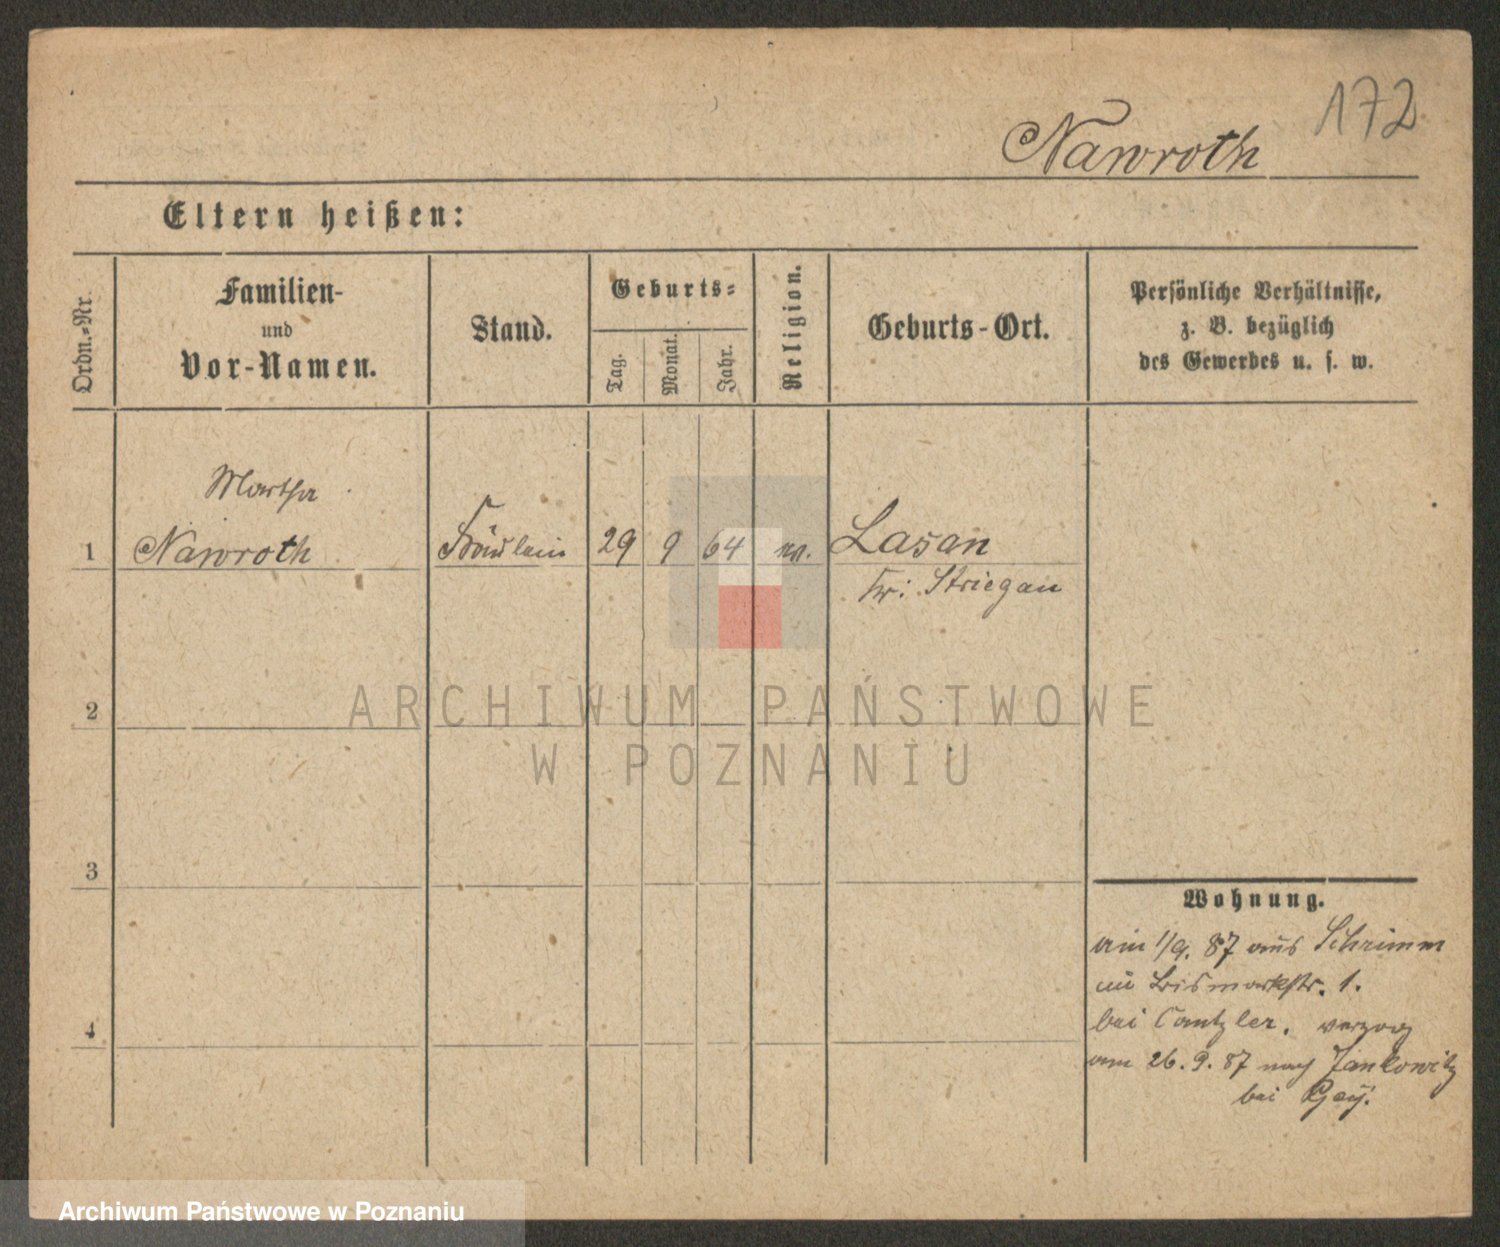 172
Nawroth
Eltern heißen:
Ordn.-Nr.
Familien-
und
Vor-Namen.
Stand.
Geburts-
Tag.
Monat.
Jahr.
Religion.
Geburts-Ort.
Persönliche Verhältnisse,
z. B. bezüglich
des Gewerbes u. s. w.
Martha
1 Nawroth Fräulein 29 9 64 Lasan
Kr: Striegau
2
ARCHIWUM PAŃSTWOWE
W POZNANIU
3
Wohnung.
1/9. 87 aus Schrimm
Bismarkstr. 1.
4
bei Cantzler, verzog
am 26. 9. 87 nach Jankowitz
bei
Archiwum Państwowe w Poznaniu